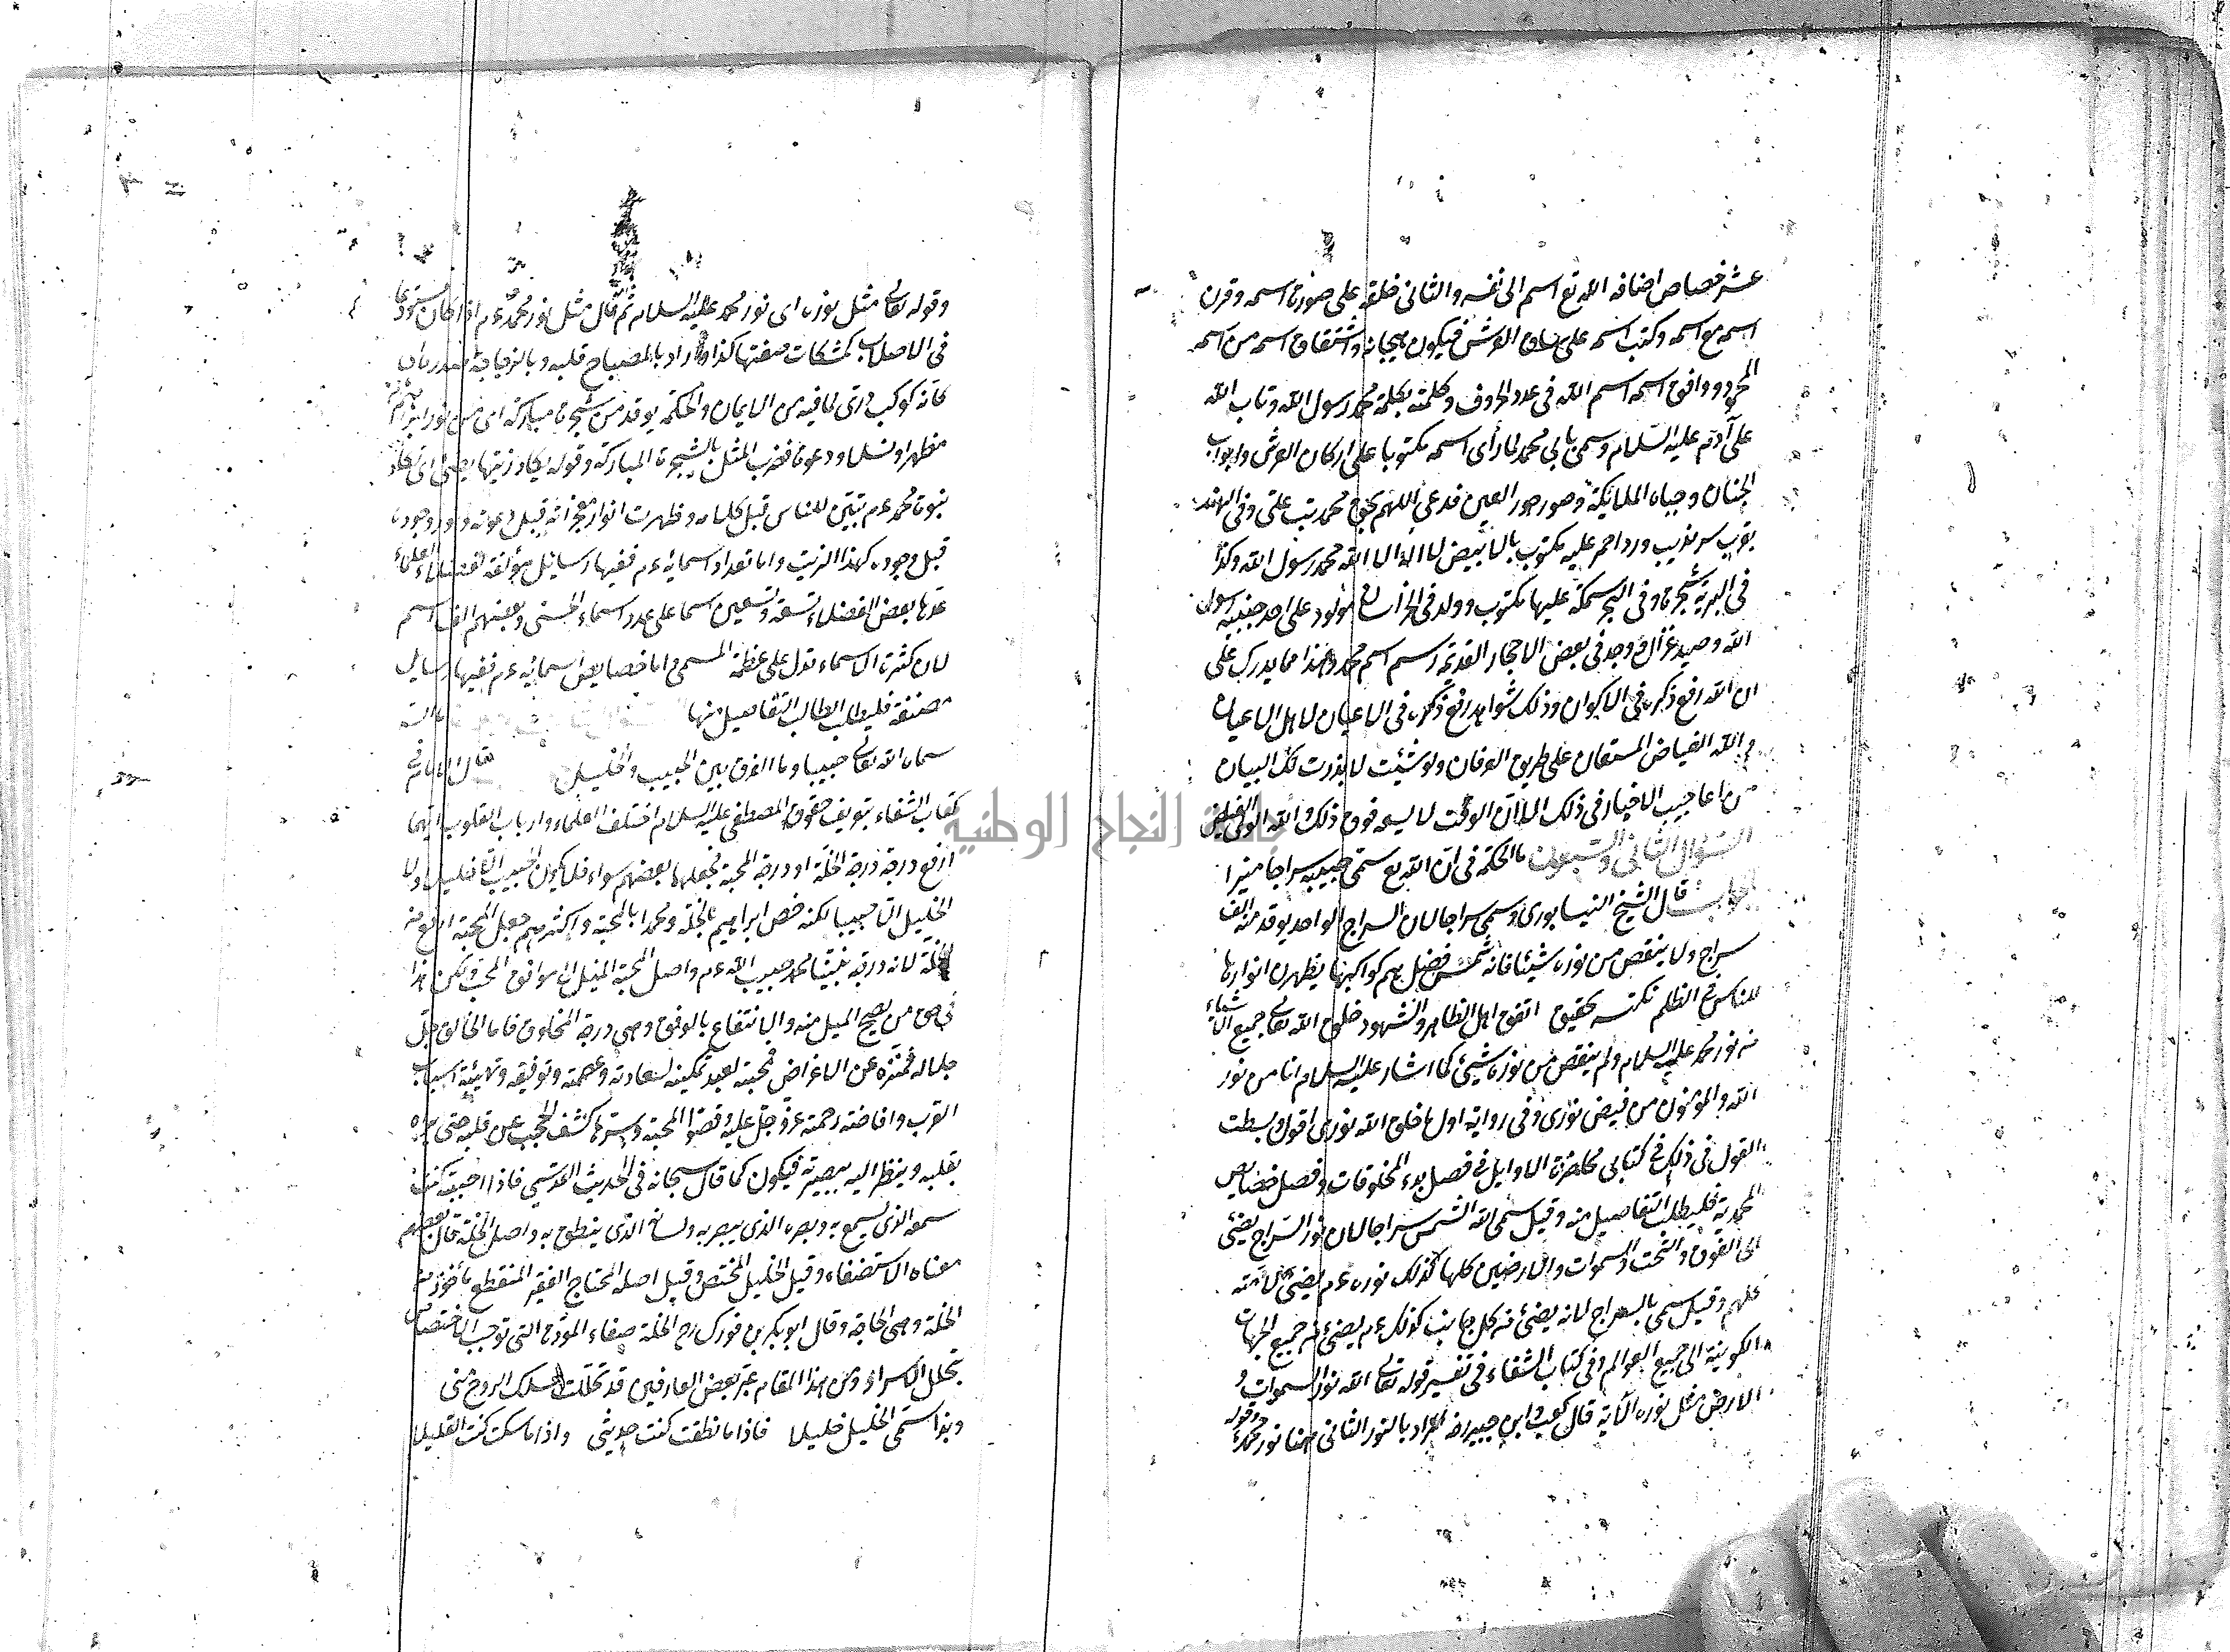 عشر خصاص اضافه الله تع اسم الى نفسه والثانى خلقه على صورة اسمه وقرن
اسمه مع اسمه وكتب اسمه على ساق العرش فيكون واشتقاق اسمه من اسمه
المحمود ووافق اسمه اسم الله فى عدد الحروف وكلمته بكلمة محمد رسول الله وتاب الله
على آدم عليه السلام وسمى بابى محمد لما رأى اسمه مكتوبا على اركان العرش وابواب
الجنان وجباه الملائكة وصور حور العين فدعى اللهم بحق محمد تب علىّ وفى الهند
بقرب سرنديب ورد احمر عليه مكتوب بالابيض لا اله الا الله محمد رسول الله وكذا
فى البرية شجرة وفى البحر سمكة عليها مكتوب وولد فى الخراسان مولود على احد جنبيه رسول
الله وصيد غزال ووجد فى بعض الاحجار القديمة رسم اسم محمد وهذا مما يدرك على
ان الله رفع ذكره فى الاكوان وذلك شواهد رفع ذكره فى الاعيان لاهل الاعيان
والله الفياض المستعان على طريق العرفان ولو شئت لا بذرت لك البيان
من اعاجيب الاخبار فى ذلك الا ان الوقت لا يسع فوق ذلك والله الولى الفياض
السؤال الثانى والتسعون ما الحكمة فى ان الله تع سمى حبيبه سراجا منيرا
الجواب قال الشيخ النيسابورى وسمى سراجا لان السراج الواحد يوقد منه الف
سراج ولا ينقص من نوره شيئا فانه شمس فضل هم كواكبها يظهرن انوارها
للناس فى الظلم نكتــه تحقيق اتفق اهل الظاهر والشهود خلق الله تعالى جميع الاشياء
من نور محمد عليه السلام ولم ينقص من نوره شيئ كما اشار عليه السلام انا من نور
الله والمؤمنون من فيض نورى وفى رواية اول ما خلق الله نورى اقول وبسطت
القول فى ذلك فى كتابى محاضرة الاوايل فى فصل بدء المخلوقات وفصل خصايص
المحمدية فليطلب التفاصيل منه وقيل سمى الله الشمس سراجا لان نور السراج يضئى
الى الفوق والتحت والسموات والارضين كلها كذلك نوره ءم يضئى لامته
كلهم وقيل سمى بالسراج لانه يضئى من كل جانب كذلك ءم يضئى من جميع الجهات
الكونية الى جميع العوالم وفى كتاب الشفاء فى تفسير قوله تعالى الله نور السموات و
الارض مثل نوره الآية قال كعب وابن جبير رض المراد بالنور الثانى هنا نور محمد ءم وقوله
وقوله تعالى مثل نوره اى نور محمد عليه السلام ثم قال مثل نور محمد ءم اذا كان مستودعا
فى الاصلاب كمشكات صفتها كذا واراد بالمصباح قلبه وبالزجاجة صدره كان
كانه كوكب درى لما فيه من الايمان والحكمة يوقد من شجرة مباركة اى من نور ابراهيم
فضرب المثل بالشجرة المباركة وقوله يكاد زيتها يضئ اى يكاد
نبوة محمد ءم تبين للناس قبل كلامه وظهرت انوار معجزاته قبل دعوته ودور وجوده
قبل وجوده كهذا الزيت واما تعداد اسمائه ءم ففيها رسايل مؤلفة لفضلاء العلماء
عدها بعض الفضلاء تسعة وتسعين اسما على عدد اسماء الحسنى وبعضهم الف اسم
لان كثرة الاسماء تدل على عظمة المسمى واما خصايص اسمائه ءم ففيها رسايل
مصنفة فليطلب الطالب التفاصيل منها
سماه الله تعالى حبيبا وما الفرق بين الحبيب والخليل قال الامام فى
كتاب الشفاء بتعريف حقوق المصطفى عليه السلام اختلف العلماء وارباب القلوب ايهما
ارفع درجة درجة الخلة او درجة المحبة فجعلها بعضهم سواء فلا يكون الحبيب الا خليلا ولا
الخليل الا حبيبا لكنه خص ابراهيم بالخلة ومحمدا بالمحبة واكثرهم جعل المحبة ارفع من
الخلة لانه درجة نبينا محمد حبيب الله ءم واصل المحبة الميل الى ما يوافق المحب ولكن هذا
فى حق من يصح الميل منه والانتفاع بالوفق وهى درجة المخلوق فاما الخالق جل
جلاله فمنزه عن الاغراض فمحبته لعبد تمكينه لسعادته وعصمته وتوفيقه وتهيئة اسباب
القرب وافاضة رحمته عز وجل عليه وقصوا المحبة وسترها كشف الحجب عن قلبه حتى يراه
بقلبه وينظر اليه ببصيرته فيكون كما قال سبحانه فى الحديث القدسى فاذا احببته كنت
سمعه الذى يسمع به وبصره الذى يبصر به ولسانه الذى ينطق به واصل الخلة قال بعضهم
معناه الاستصفاء وقيل الخليل المختص وقيل اصله المحتاج الفقير المنقطع مأخوذ من
الخلة وهى الحاجة وقال ابو بكر بن فورك رح الخلة صفاء المودة التى توجب الاختصاص
بتخلل الاسرار ومن هذا المقام عبر بعض العارفين قد تخللت مسلك الروح منى
وبذا سمى الخليل خليلا فاذا ما نطقت كنت حديثى واذا ما سكت كنت الغليلا
جامعة النجاح الوطنية